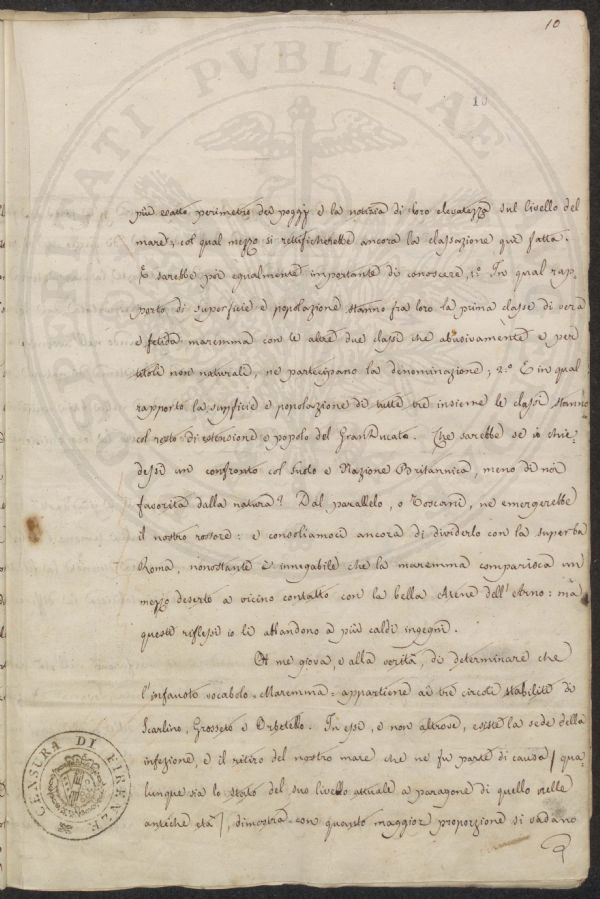 10
10
più esatto perimetro dei poggj e la notizia di loro elevatezza sul livello del
mare, col qual mezzo si rettificherebbe ancora la classazione quì fatta.
E sarebbe poi egualmente importante di conoscere, 1.º In qual rap-
porto di superficie e popolazione stanno fra loro la prima classe di vera
e fetida maremma con le altre due classi che abusivamente e per
titoli non naturali, ne partecipano la denominazione; 2.º E in qual
rapporto la supficie e popolazione di tutte tre insieme le classi stanno
col resto di estensione e popolo del GranDucato. Che sarebbe se io chie-
dessi un confronto col suolo e Nazione Britannica, meno di noi
favorita dalla natura? Dal parallelo, o Toscani, ne emergerebbe
il nostro rossore: e consoliamoci ancora di dividerlo con la superba
Roma, nonostante è innegabile che la maremma comparisca un
mezzo deserto a vicino contatto con la bella Atene dell'Arno: ma
questi riflessi io li abbandono a più caldi ingegni.
A me giova, e alla verità, di determinare che
l'infausto vocabolo = Maremma = appartiene ai tre circoli stabiliti di
Scarlino, Grosseto e Orbetello. In essi, e non altrove, esiste la sede della
infezione, e il ritiro del nostro mare che ne fu parte di causa / qua-
lunque sia lo stato del suo livello attuale a paragone di quello nelle
antiche età /, dimostra con quanto maggior proporzione si vadano
CENSURA DI FIRENZE
OSPERITATI PVBLICAE